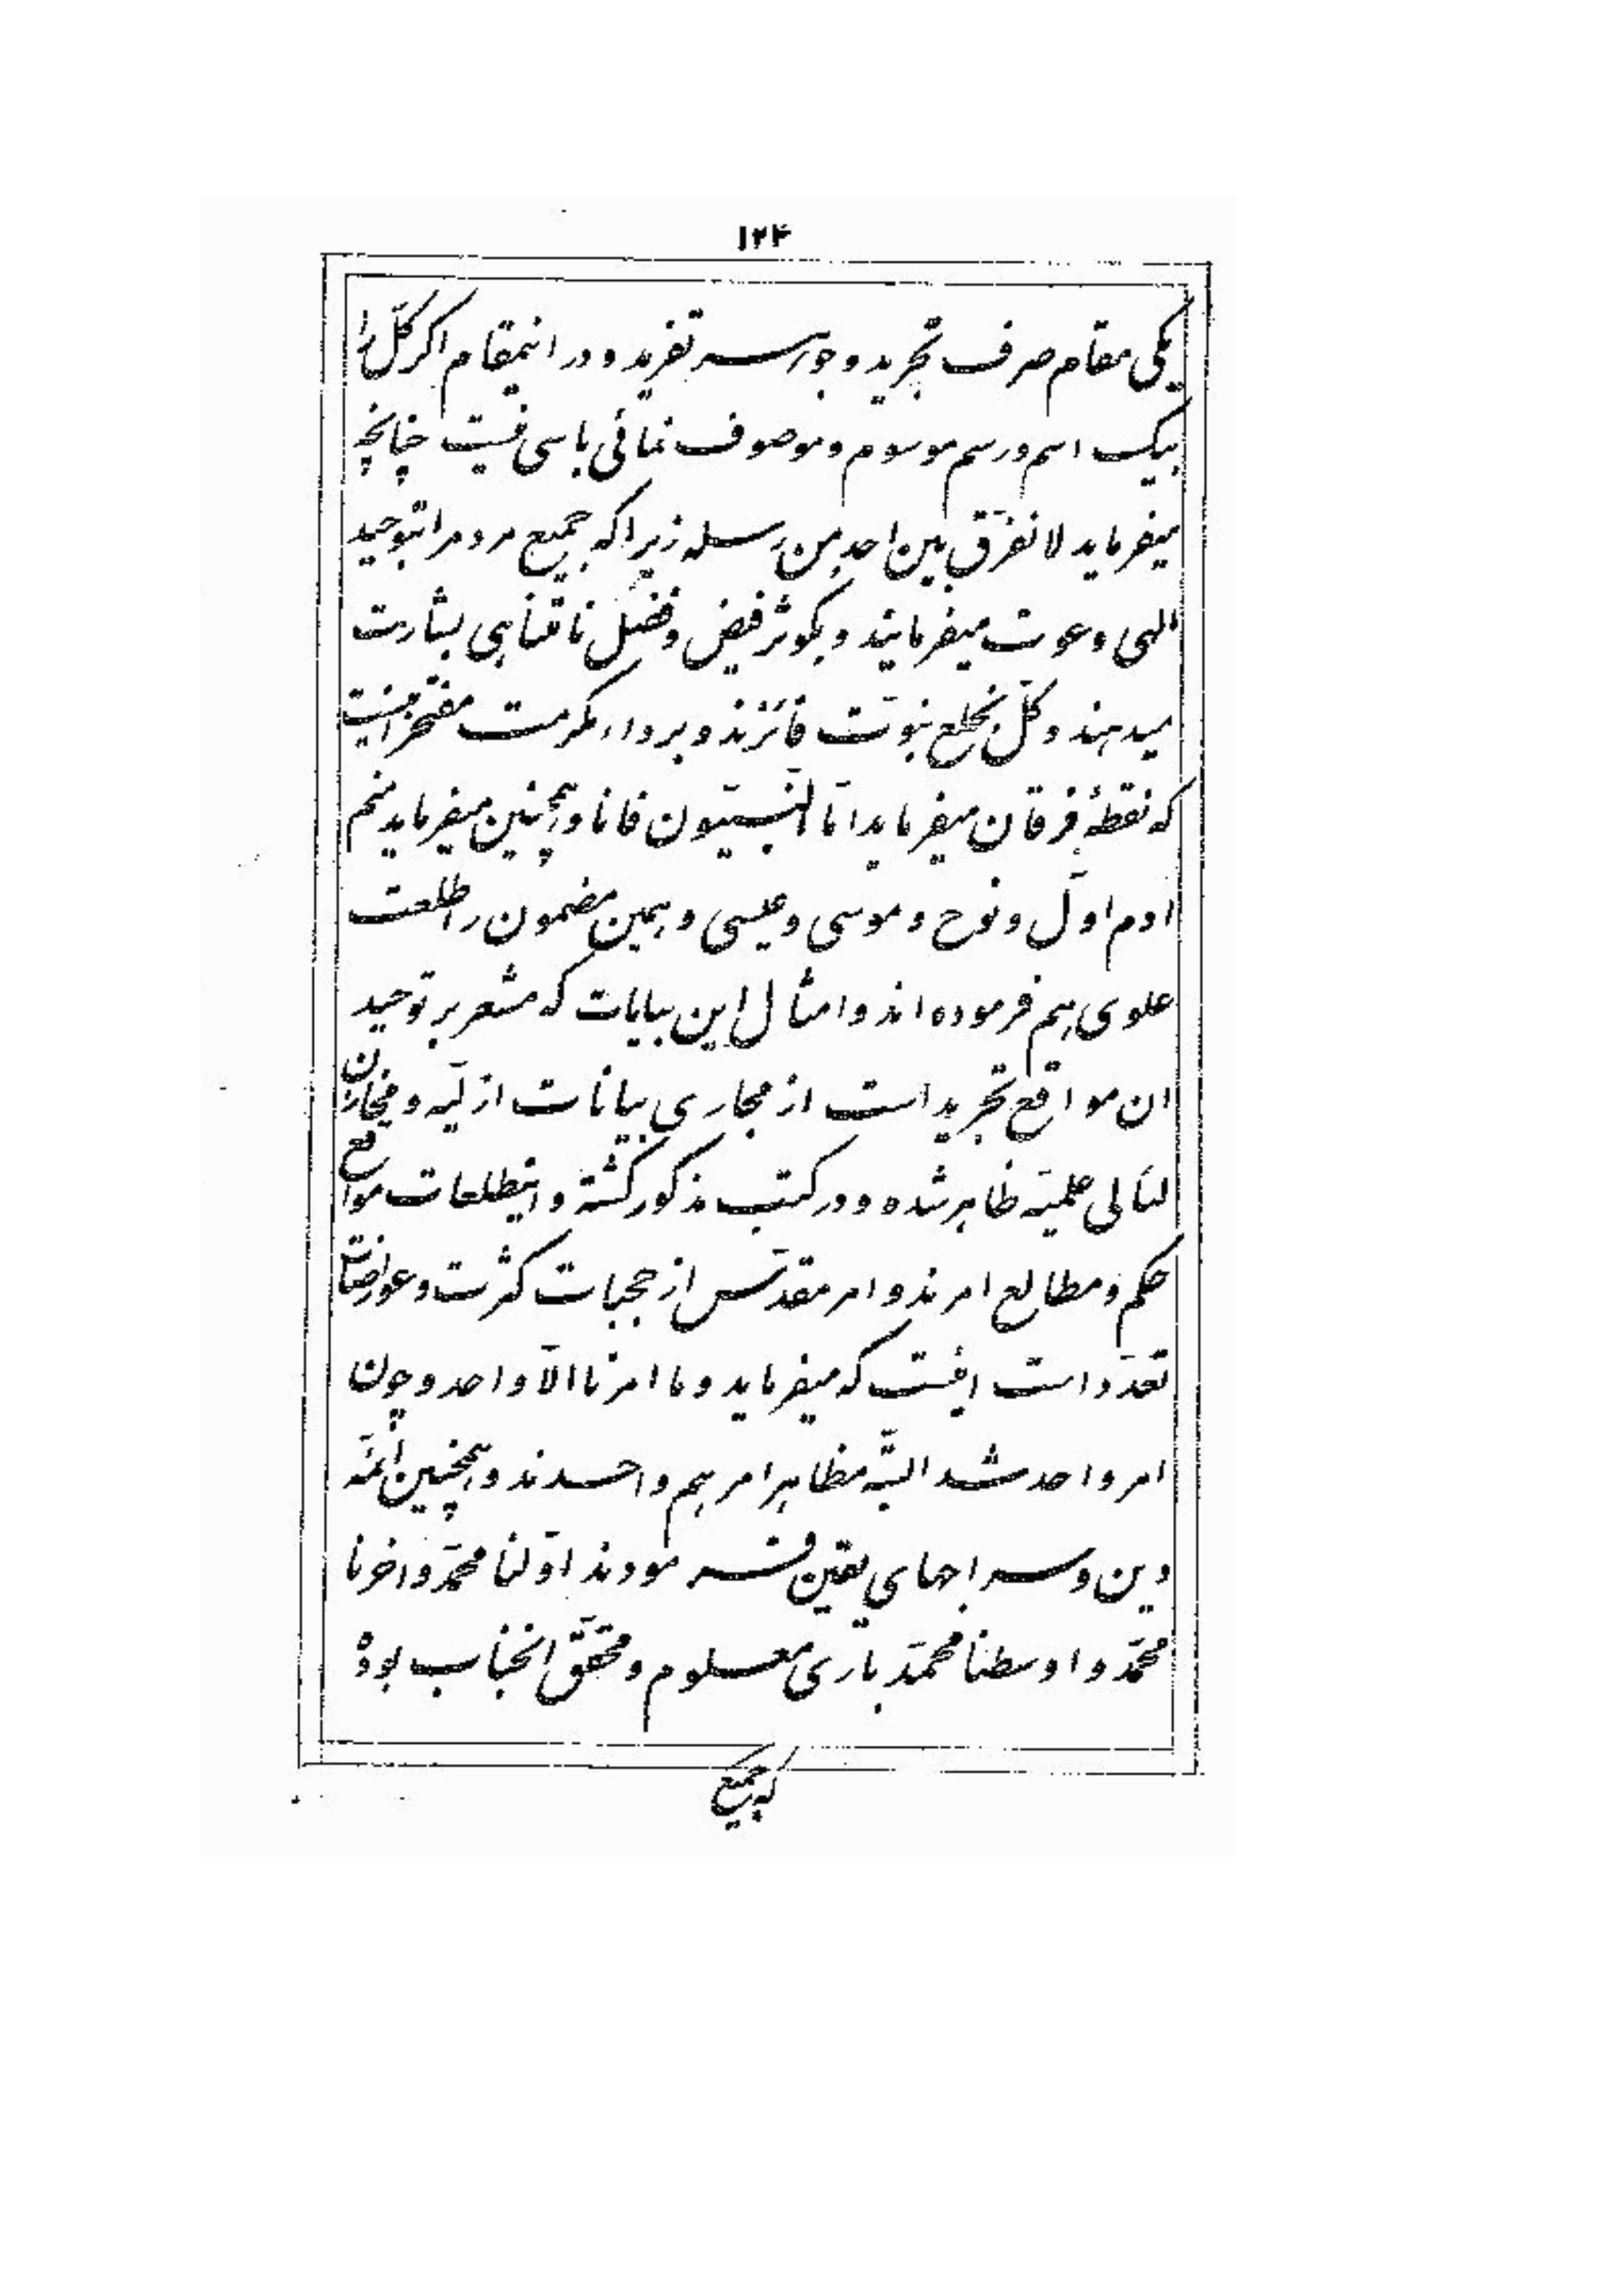 ۱۲۴
یکی مقام صرف تجرید و جوهر تفرید و در اینمقام اگر کلّ را
بیک اسم و رسم موسوم و موصوف نمائی باسی نیست چنانچه
میفرماید لا نفرّق بین احد من رسله زیرا که جمیع مردم را بتوحید
الهی دعوت میفرمایند و بکوثر فیض و فضل نامتناهی بشارت
میدهند و کلّ بخلع نبوّت فائزند و برداء مکرمت مفتخر اینست
که نقطهٔ فرقان میفرماید امّا النّبیّون فانا و همچنین میفرماید منم
ادم اوّل و نوح و موسی و عیسی و همین مضمون را طلعت
علوی هم فرموده‌اند و امثال این بیانات که مشعر بر توحید
ان مواقع تجرید است از مجاری بیانات ازلیّه و مخازن
لئالی علمیّه ظاهر شده و در کتب مذکور گشته و اینطلعات مواقع
حکم و مطالع امرند و امر مقدّس از حجبات کثرت و عوارضات
تعدّد است اینست که میفرماید و ما امرنا الّا واحد و چون
امر واحد شد البتّه مظاهر امر هم واحدند و همچنین ائمّه
دین و سراجهای یقین فرمودند اوّلنا محمّد و اخرنا
محمّد و اوسطنا محمّد باری معلوم و محقّق انجناب بوده
که جمیع